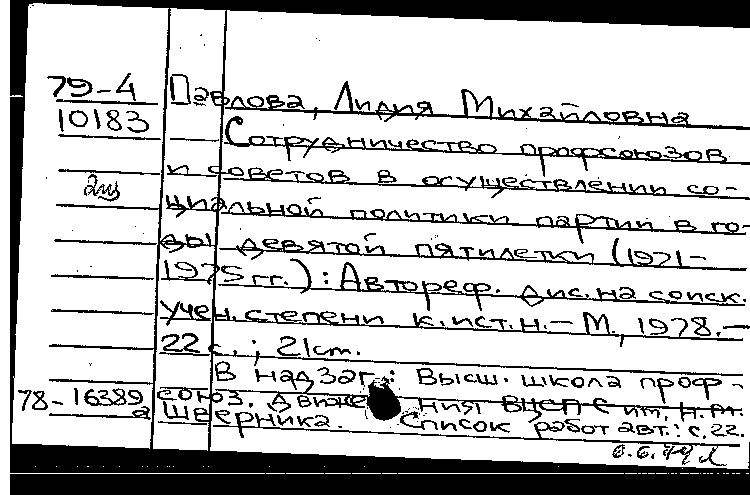 79-4 Павлова, Лидия Михайловна
10183 Сотрудничество профсоюзов
и советов в осуществлении со-
2щ
циальной политики партии в го-
ды девятой пятилетки (1971-
1975 гг.): Автореф. дис. на соиск.
учен. степени к. ист. н. – М., 1978. –
22 с.; 21 cm.
В надзаг.: Высш. школа проф-
78-16389 союз. движения ВЦСПС им. Н. М.
а Шверника. Список работ авт.: с. 22.